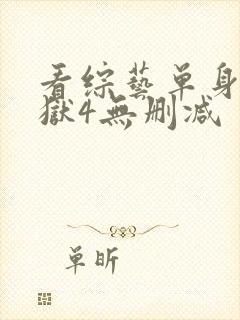 看综藝单身
獄4無删减
单昕